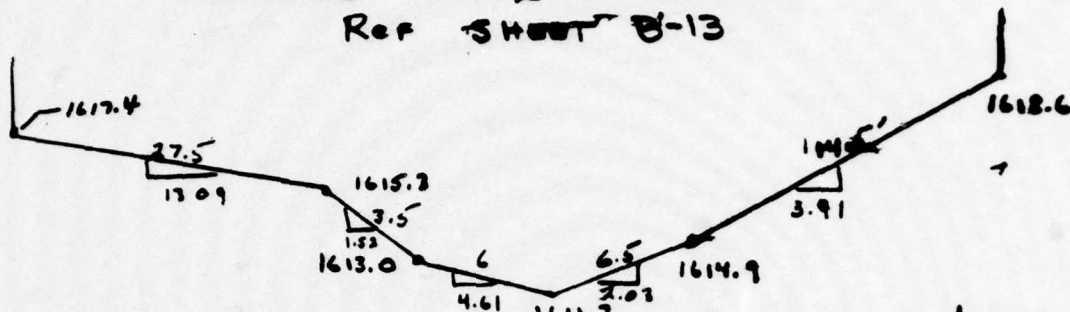 Ref SHEET B-13
1617.4
1618.6
27.5
13.09
1615.3
3.5
1.52
1613.0
6
4.61
6.5
2.03
1614.9
3.91